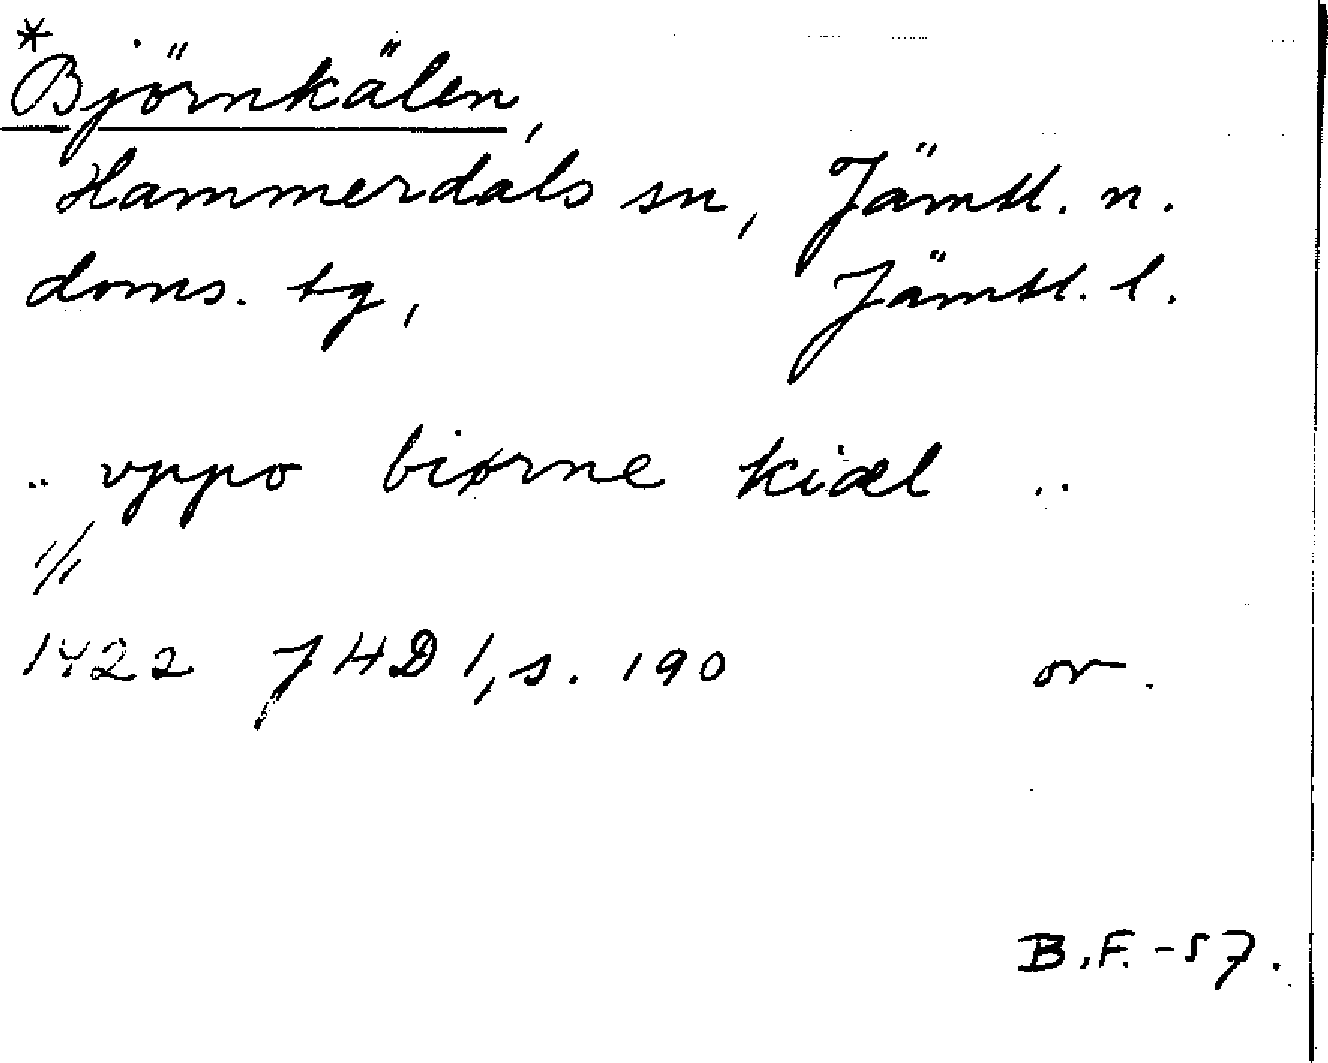 *Björnkälen,
Hammerdals sn, Jämtl. n.
doms. tg, Jämtl. l.
.. vppo biørne kiæl ..
1/1
1422 JHD 1, s. 190 or.
B.F. -57.